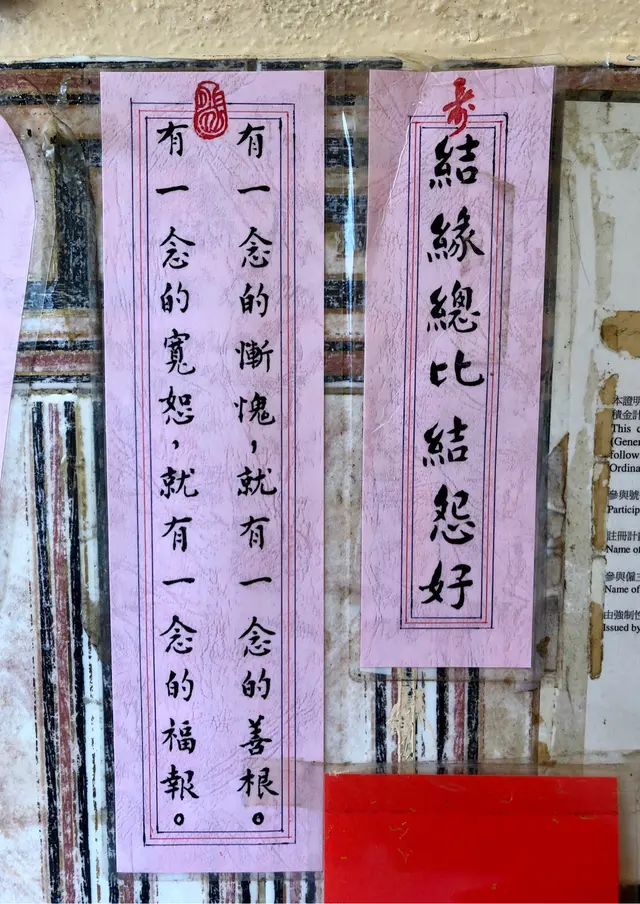 結緣總比結怨好
有一念的慚愧，就有一念的善根。
有一念的寬恕，就有一念的福報。
本證明
積金計
This
(Gener
follow
Ordina
參與號
Particip
註冊計
Name of
參與僱主
Name of
由強制性
Issued by